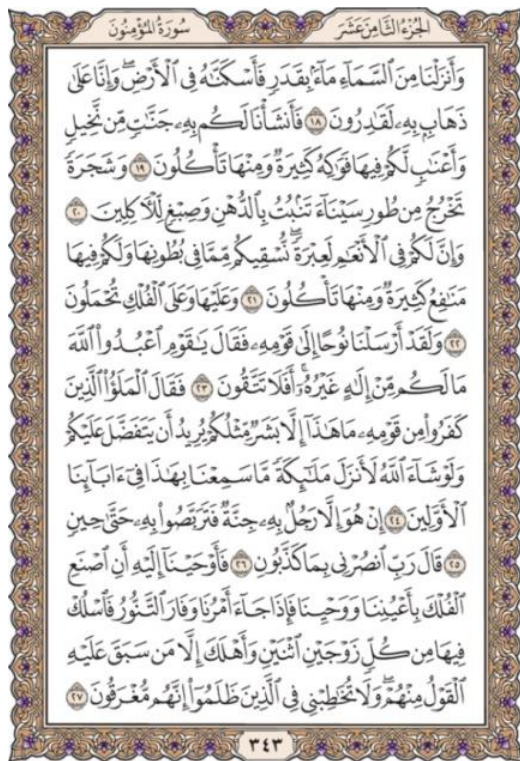 الجزء الثامن عشر
سورة المؤمنون
وَأَنزَلْنَا مِنَ ٱلسَّمَآءِ مَآءًۢ بِقَدَرٍ فَأَسْكَنَّـٰهُ فِى ٱلْأَرْضِ ۖ وَإِنَّا عَلَىٰ
ذَهَابٍۭ بِهِۦ لَقَـٰدِرُونَ ١٨ فَأَنشَأْنَا لَكُم بِهِۦ جَنَّـٰتٍ مِّن نَّخِيلٍ
وَأَعْنَـٰبٍ لَّكُمْ فِيهَا فَوَٰكِهُ كَثِيرَةٌ وَمِنْهَا تَأْكُلُونَ ١٩ وَشَجَرَةً
تَخْرُجُ مِن طُورِ سَيْنَآءَ تَنۢبُتُ بِٱلدُّهْنِ وَصِبْغٍ لِّلْـَٔاكِلِينَ ٢٠
وَإِنَّ لَكُمْ فِى ٱلْأَنْعَـٰمِ لَعِبْرَةً ۖ نُّسْقِيكُم مِّمَّا فِى بُطُونِهَا وَلَكُمْ فِيهَا
مَنَـٰفِعُ كَثِيرَةٌ وَمِنْهَا تَأْكُلُونَ ٢١ وَعَلَيْهَا وَعَلَى ٱلْفُلْكِ تُحْمَلُونَ
٢٢ وَلَقَدْ أَرْسَلْنَا نُوحًا إِلَىٰ قَوْمِهِۦ فَقَالَ يَـٰقَوْمِ ٱعْبُدُوا۟ ٱللَّهَ
مَا لَكُم مِّنْ إِلَـٰهٍ غَيْرُهُۥٓ ۖ أَفَلَا تَتَّقُونَ ٢٣ فَقَالَ ٱلْمَلَؤُا۟ ٱلَّذِينَ
كَفَرُوا۟ مِن قَوْمِهِۦ مَا هَـٰذَآ إِلَّا بَشَرٌ مِّثْلُكُمْ يُرِيدُ أَن يَتَفَضَّلَ عَلَيْكُمْ
وَلَوْ شَآءَ ٱللَّهُ لَأَنزَلَ مَلَـٰٓئِكَةً مَّا سَمِعْنَا بِهَـٰذَا فِىٓ ءَابَآئِنَا
ٱلْأَوَّلِينَ ٢٤ إِنْ هُوَ إِلَّا رَجُلٌۢ بِهِۦ جِنَّةٌ فَتَرَبَّصُوا۟ بِهِۦ حَتَّىٰ حِينٍ
٢٥ قَالَ رَبِّ ٱنصُرْنِى بِمَا كَذَّبُونِ ٢٦ فَأَوْحَيْنَآ إِلَيْهِ أَنِ ٱصْنَعِ
ٱلْفُلْكَ بِأَعْيُنِنَا وَوَحْيِنَا فَإِذَا جَآءَ أَمْرُنَا وَفَارَ ٱلتَّنُّورُ ۙ فَٱسْلُكْ
فِيهَا مِن كُلٍّ زَوْجَيْنِ ٱثْنَيْنِ وَأَهْلَكَ إِلَّا مَن سَبَقَ عَلَيْهِ
ٱلْقَوْلُ مِنْهُمْ ۖ وَلَا تُخَـٰطِبْنِى فِى ٱلَّذِينَ ظَلَمُوٓا۟ ۖ إِنَّهُم مُّغْرَقُونَ ٢٧
٣٤٣